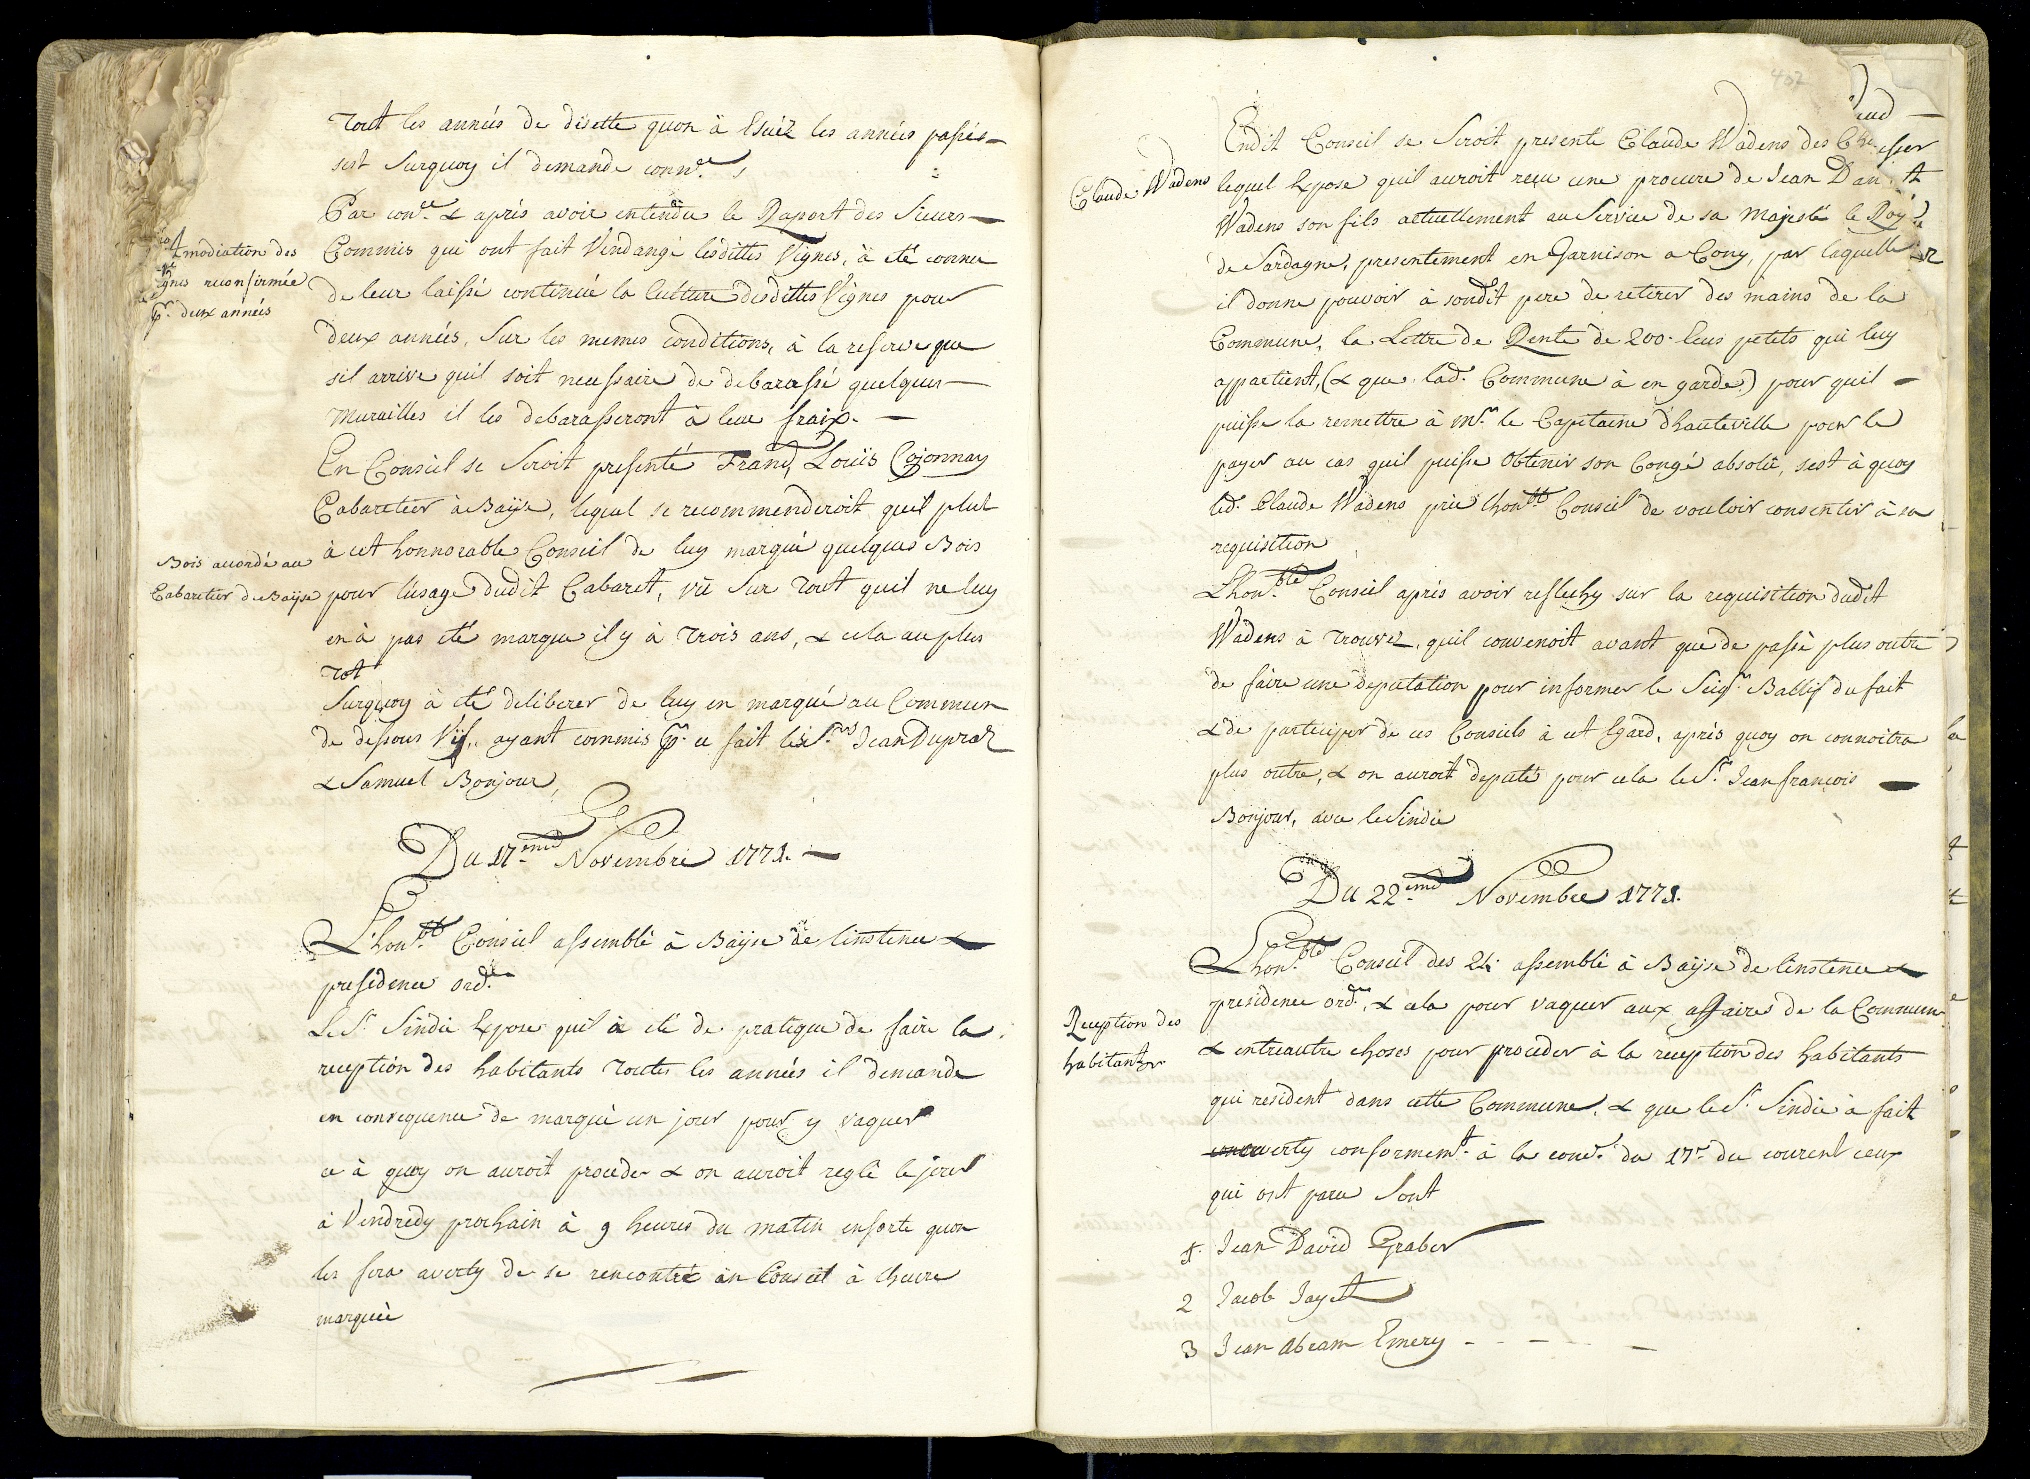 Tout les années de disette quon à Esuiéz les années passés
sest surquoy il demande conn.ce
Par con.ce & après avoir entendu le Raport des Sieurs
Commis qui ont fait Vendangé lesdittes Vignes, à été connu
Amodiation des
Vignes reconfirmée
p.r deux années
de leur laissé continué la Culture desdittes Vignes pour
deux années, sur les memes conditions, à la reserve que
sil arrive quil soit necessaire de debarassé quelques
murailles il les debarasseront à leur fraix.
En Conseil se seroit presenté Franç Louïs Cojonnay
Cabaretier à Baÿse, lequel se recommenderoit quil plut
à cet honnorable Conseil de luy marqué quelques Bois
Bois accordé au
Cabaretier de Baÿse
pour lusage dudit Cabaret, vû sur tout quil ne luy
en à pas été marqué il y à trois ans, & cela au plus
tot
Surquoy à été deliberer de luy en marqué au Commun
de dessous Vÿ, ayant commis p.r ce fait les S.rs Jean Dupraz
& Samuel Bonjour,
Du 17.eme Novembre 1771.
L'hon.ble Conseil assemblé à Baÿse de linstence &
presidence ord.re
Le S.r Sindic Expose quil à été de pratique de faire la
reception des habitants toutes les années il demande
en consequence de marqué un jour pour y vaquer
ce à quoy on auroit proceder & on auroit reglé le jour
à Vendredy prochain à 9 heures du matin ensorte quon
les fera averty de se rencontré en Conseil à lheure
marquée
407
Endit Conseil se seroit presenté Claude Wadens des
Claude Wadens
lequel Expose quil auroit reçu une procure de Jean
Wadens son fils actuellement au Service de sa Majesté le Roy
de Sardagne, presentement en Garnison a Cony, par laquelle
il donne pouvoir à sondit pere de retirer des mains de la
Commune, la Lettre de Rente de 200. Ecus petits qui luy
appartient, (& que lad. Commune à en garde) pour quil
puisse la remettre à Mr. le Capitaine d'hauteville pour le
payer au cas quil puisse obtenir son Congé absolu, sest à quoy
led. Claude Wadens prie lhon.ble Conseil de vouloir consentir à sa
requisition
Lhon.ble Conseil après avoir reflechy sur la requisition dudit
Wadens à trouvez, quil convenoit avant que de passé plus outre
de faire une deputation pour informer le Seig.r Ballif du fait
& de participer de ces Conseils à cet Egard, après quoy on connoitra
plus outre, & on auroit deputé pour cela le S.r Jean francois
Bonjour, avec le Sindic
Du 22.eme Novembre 1771.
Lhon.ble Conseil des 24 assemblé à Baÿse de linstence &
presidence ord.re, & cela pour vaquer aux affaires de la Commune
Reception des
habitants
& entreautre choses pour proceder à la reception des habitants
qui resident dans cette Commune, & que le S.r Sindic à fait
averty conformem.t à la con.ce du 17.e du courent ceux
qui ont paru Sont
1. Jean David Graber
2 Jacob Jayet
3 Jean Abram Emery